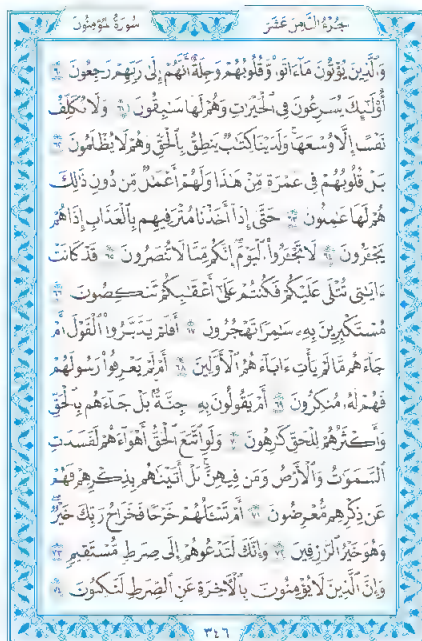 الجزء الثامن عشر سورة المؤمنون
وَالَّذِينَ يُؤْتُونَ مَا ءَاتَوا وَّقُلُوبُهُمْ وَجِلَةٌ أَنَّهُمْ إِلَىٰ رَبِّهِمْ رَٰجِعُونَ ٦٠
أُو۟لَٰٓئِكَ يُسَٰرِعُونَ فِى ٱلْخَيْرَٰتِ وَهُمْ لَهَا سَٰبِقُونَ ٦١ وَلَا نُكَلِّفُ
نَفْسًا إِلَّا وُسْعَهَا وَلَدَيْنَا كِتَٰبٌ يَنطِقُ بِٱلْحَقِّ وَهُمْ لَا يُظْلَمُونَ ٦٢
بَلْ قُلُوبُهُمْ فِى غَمْرَةٍ مِّنْ هَٰذَا وَلَهُمْ أَعْمَٰلٌ مِّن دُونِ ذَٰلِكَ
هُمْ لَهَا عَٰمِلُونَ ٦٣ حَتَّىٰٓ إِذَآ أَخَذْنَا مُتْرَفِيهِم بِٱلْعَذَابِ إِذَا هُمْ
يَجْـَٔرُونَ ٦٤ لَا تَجْـَٔرُوا۟ ٱلْيَوْمَ إِنَّكُم مِّنَّا لَا تُنصَرُونَ ٦٥ قَدْ كَانَتْ
ءَايَٰتِى تُتْلَىٰ عَلَيْكُمْ فَكُنتُمْ عَلَىٰٓ أَعْقَٰبِكُمْ تَنكِصُونَ ٦٦
مُسْتَكْبِرِينَ بِهِۦ سَٰمِرًا تَهْجُرُونَ ٦٧ أَفَلَمْ يَدَّبَّرُوا۟ ٱلْقَوْلَ أَمْ
جَآءَهُم مَّا لَمْ يَأْتِ ءَابَآءَهُمُ ٱلْأَوَّلِينَ ٦٨ أَمْ لَمْ يَعْرِفُوا۟ رَسُولَهُمْ
فَهُمْ لَهُۥ مُنكِرُونَ ٦٩ أَمْ يَقُولُونَ بِهِۦ جِنَّةٌۢ بَلْ جَآءَهُم بِٱلْحَقِّ
وَأَكْثَرُهُمْ لِلْحَقِّ كَٰرِهُونَ ٧٠ وَلَوِ ٱتَّبَعَ ٱلْحَقُّ أَهْوَآءَهُمْ لَفَسَدَتِ
ٱلسَّمَٰوَٰتُ وَٱلْأَرْضُ وَمَن فِيهِنَّ بَلْ أَتَيْنَٰهُم بِذِكْرِهِمْ فَهُمْ
عَن ذِكْرِهِم مُّعْرِضُونَ ٧١ أَمْ تَسْـَٔلُهُمْ خَرْجًا فَخَرَاجُ رَبِّكَ خَيْرٌ
وَهُوَ خَيْرُ ٱلرَّٰزِقِينَ ٧٢ وَإِنَّكَ لَتَدْعُوهُمْ إِلَىٰ صِرَٰطٍ مُّسْتَقِيمٍ ٧٣
وَإِنَّ ٱلَّذِينَ لَا يُؤْمِنُونَ بِٱلْءَاخِرَةِ عَنِ ٱلصِّرَٰطِ لَنَٰكِبُونَ ٧٤
٣٤٦